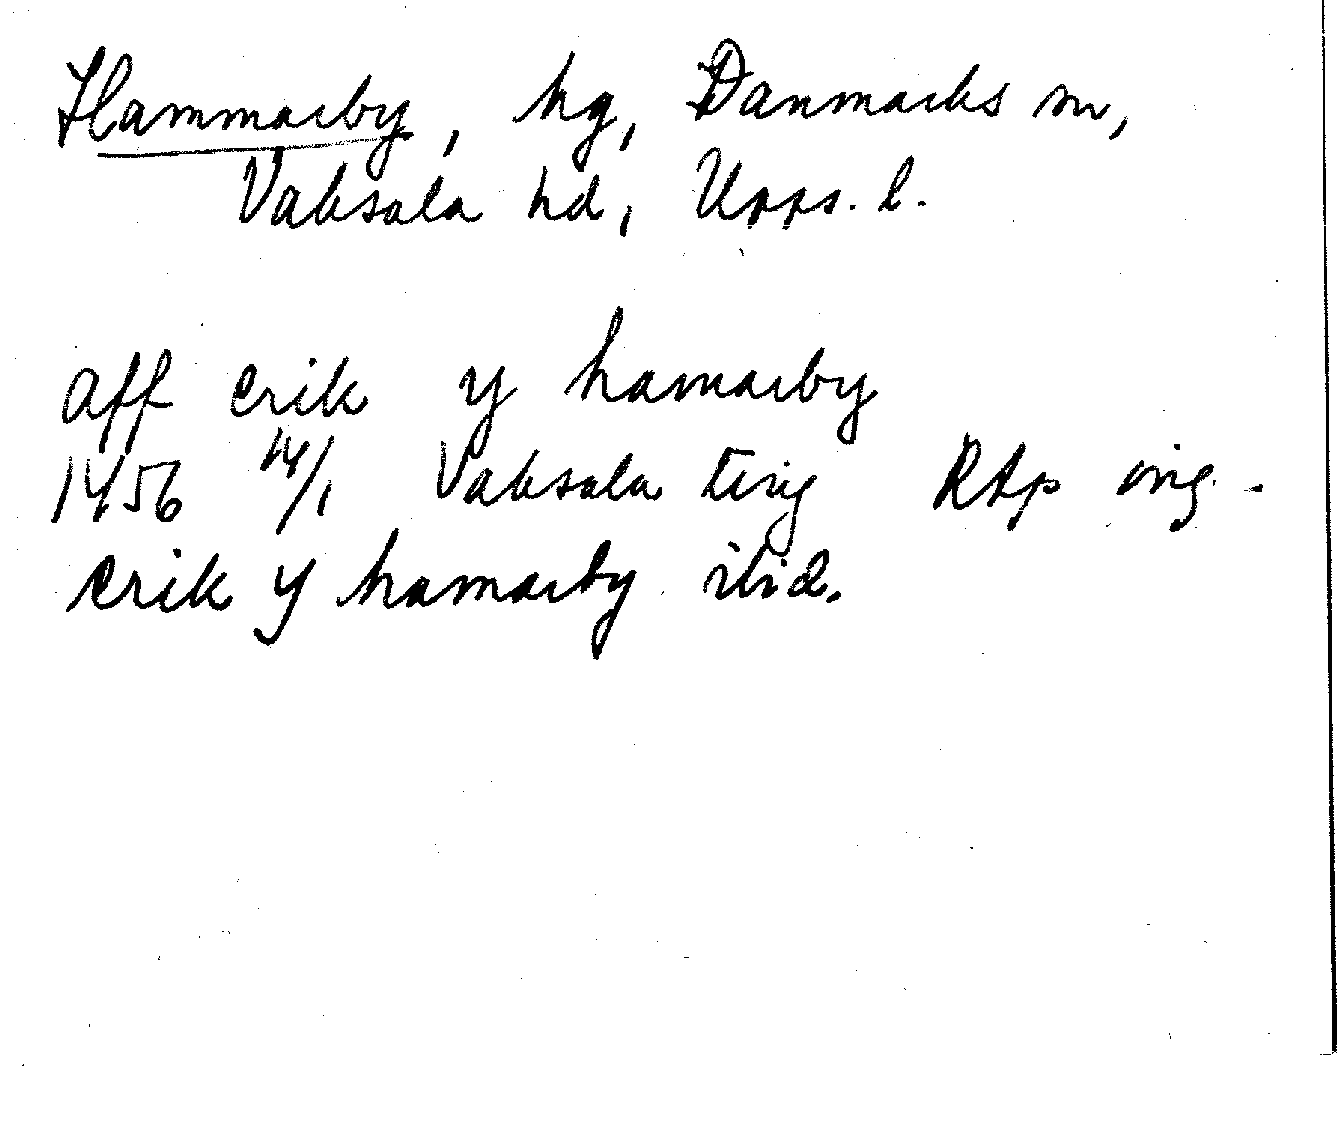 Hammarby, hg, Danmarks sn,
Vaksala hd, Upps. l.
aff erik y hamarby
1456 14/1 Vaksala ting RAp orig.
erik y hamarby ibid.